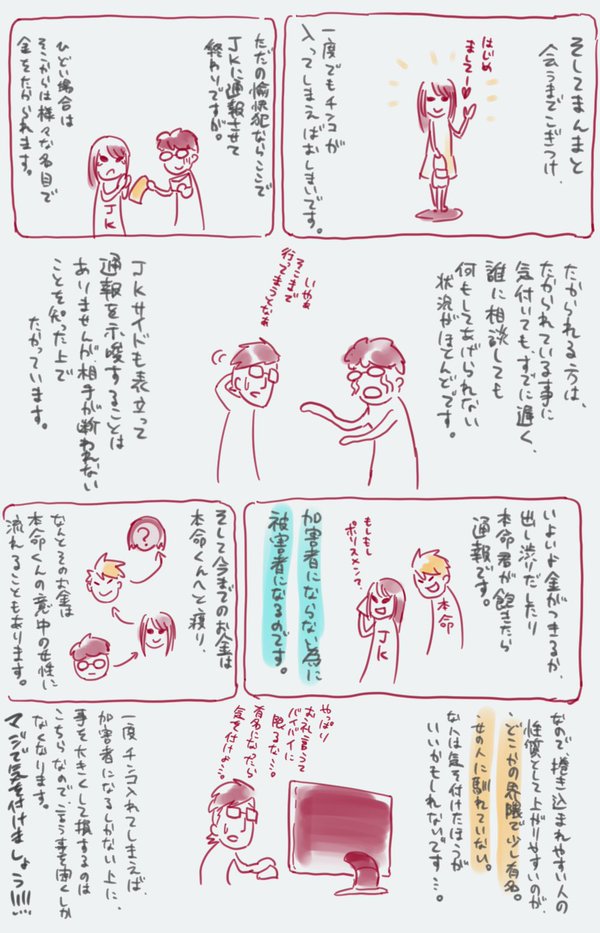 そしてまんまと
会うまでこぎつけ、
はじめ
まして〜♥
一度でもチンコが
入ってしまえばおしまいです。
ただの愉快犯ならここで
JKに通報させて
終わりですが。
ひどい場合は
そこからは様々な名目で
金をたかられます。
JK
たかられる方は、
たかられている事に
気付いても、すでに遅く、
誰に相談しても
何もしてあげられない
状況がほとんどです。
いやぁ
そこまで
行ってまうとなぁ
JKサイドも表立って
通報を示唆することは
ありませんが相手が断われない
ことを知った上で
たかっています。
いよいよ金がつきるか、
出し渋りだしたり
本命君が飽きたら
通報です。
本命
もしもし
ポリスメン?
JK
加害者にならない為に
被害者になるのです。
そして今までのお金は
本命くんへと渡り、
?
なんとそのお金は
本命くんの意中の女性に
流れることもあります。
なので、捲き込まれやすい人の
性質として上がりやすいのが、
どこかの界隈で少し有名。
女の人に馴れていない。
な人は気を付けたほうが
いいかもしれないです…。
やっぱり
お礼言うて
バイバイに
限るな…。
有名になったら
気を付けよ…。
一度チンコ入れてしまえば、
加害者になるしかない上に、
事を大きくして損するのは
こちらなので言う事を聞くしか
なくなります。
マジで気を付けましょう!!!!